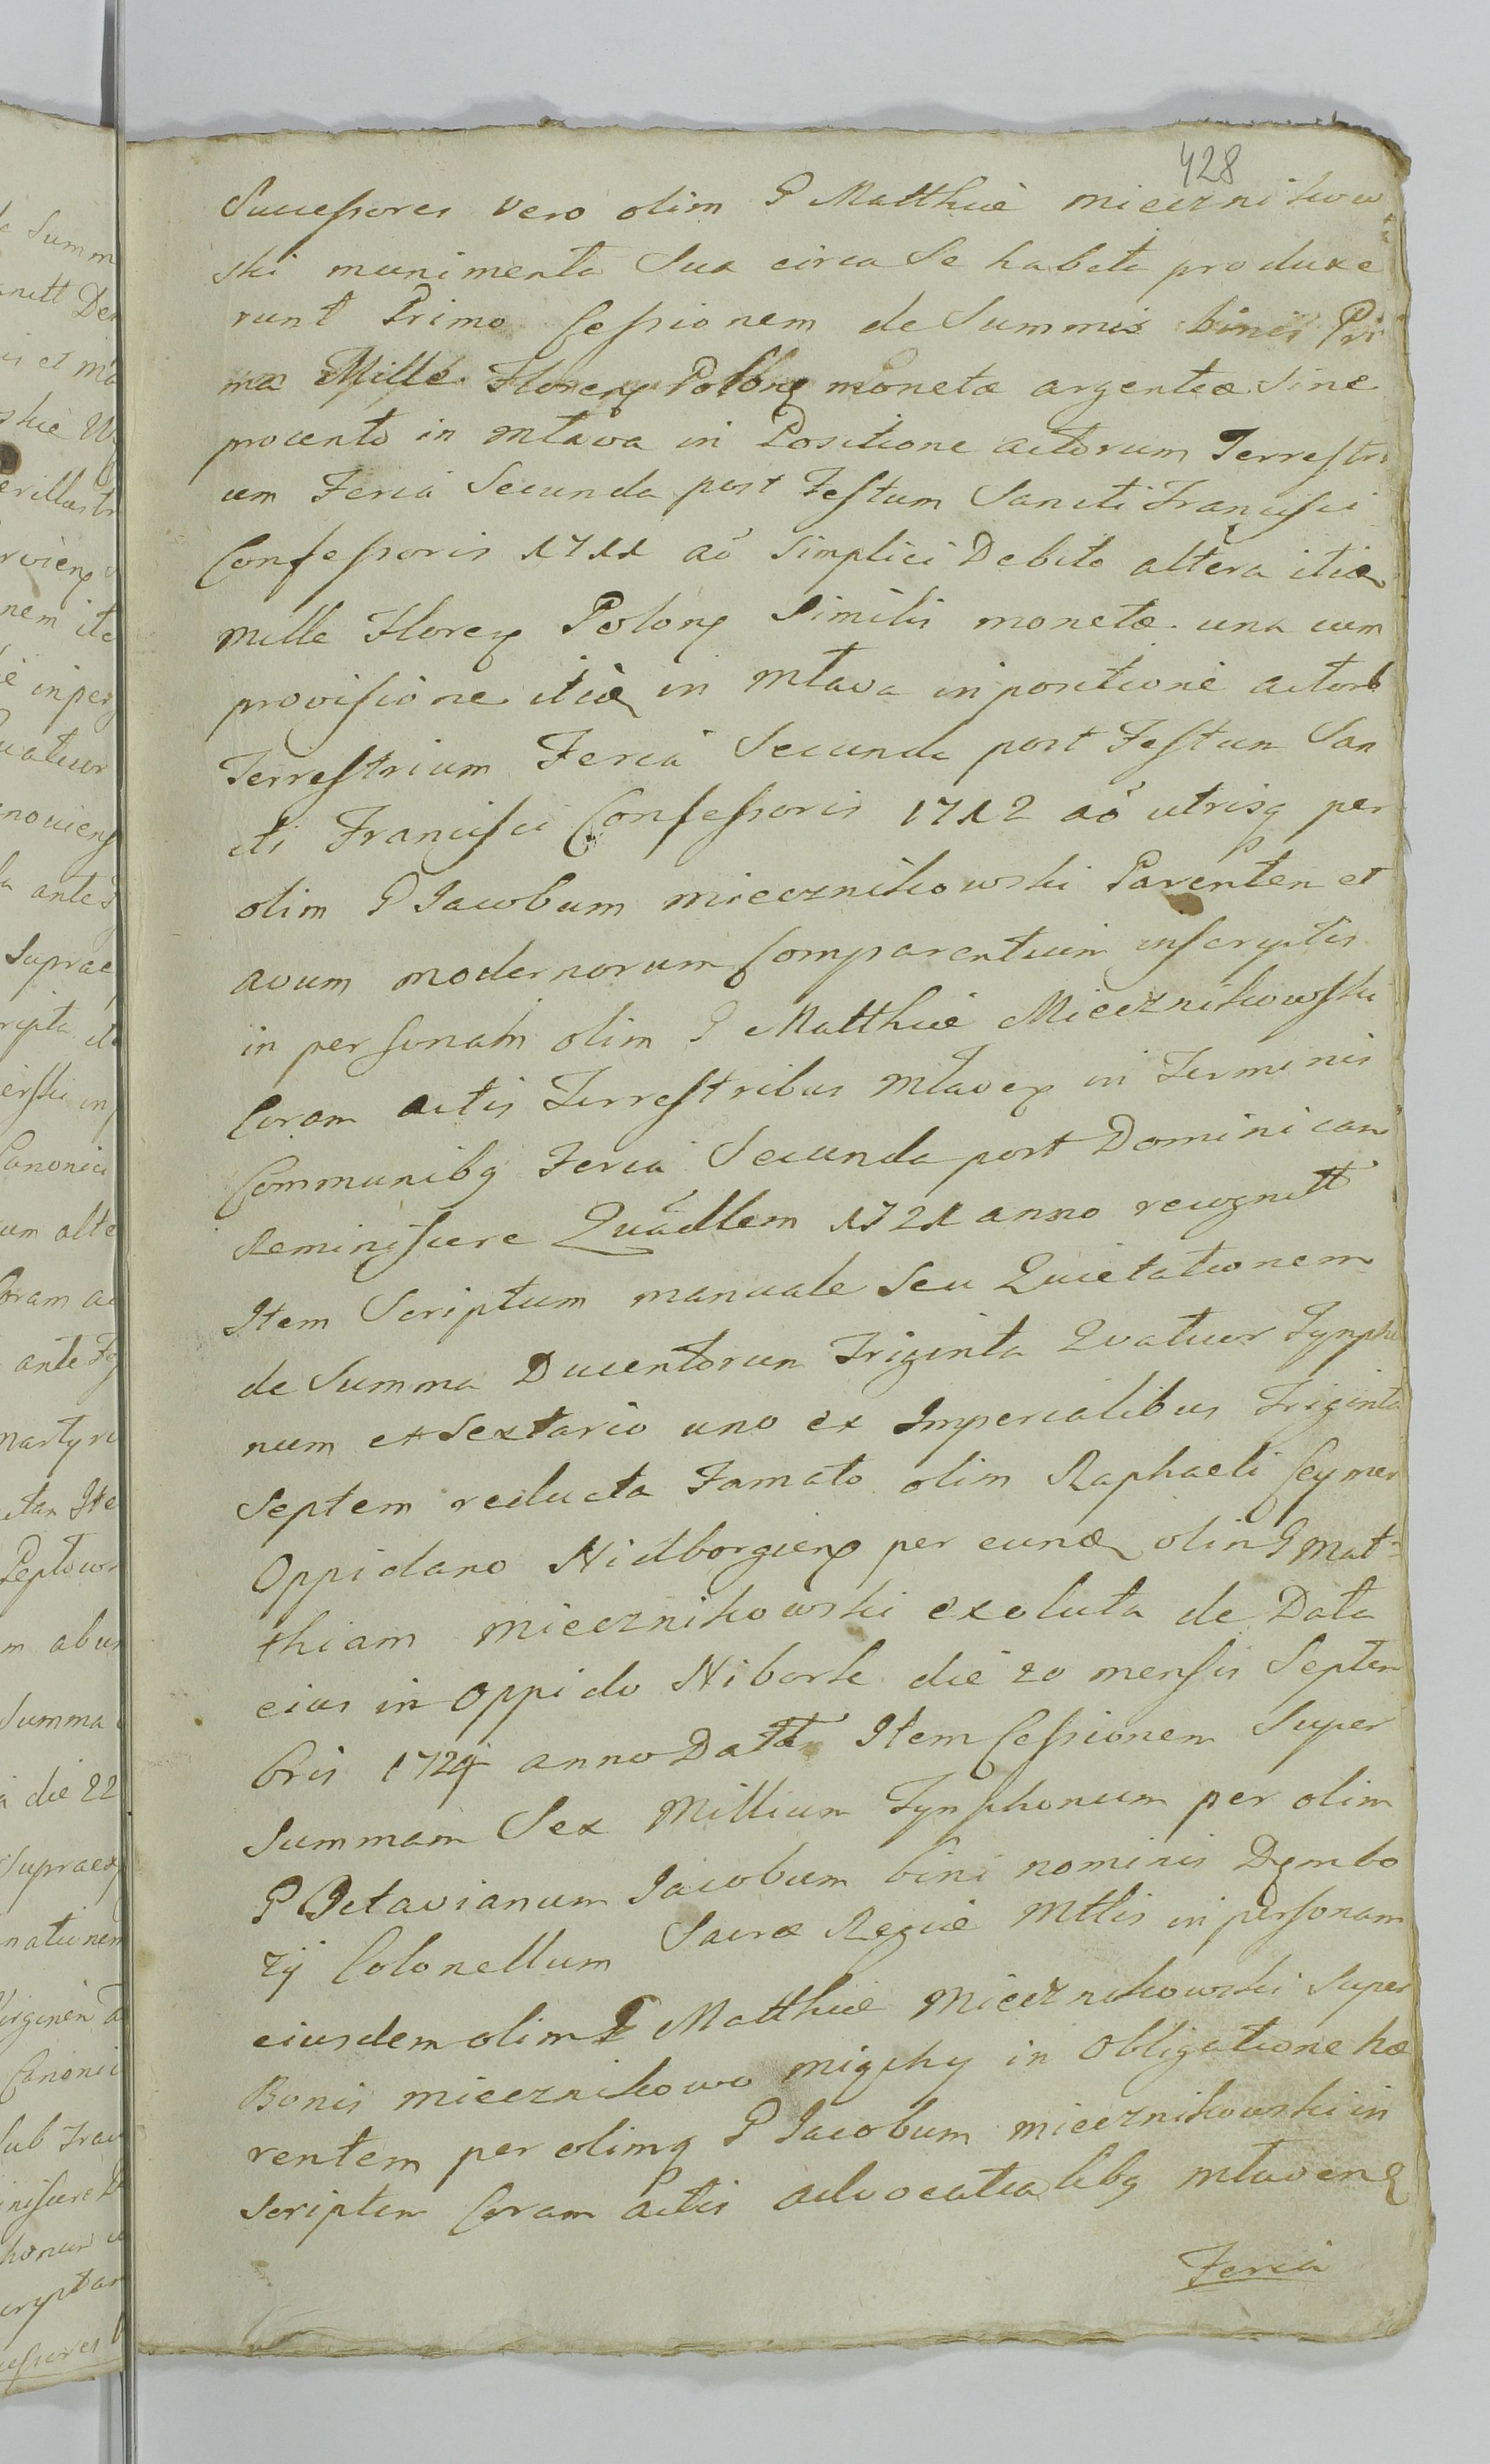 428
Successores vero olim G Matthiæ miecznikow
ski munimenta Sua circa Se habita produxe
runt Primo Cessionem de Summis binis Pri
ma Mille Floreng Polong monetæ argenteæ Sine
procento in Mława in Positione actorum Terrestri
um Feria Secunda post Festum Sancti Francisci
Confessoris 1711 aō Simplici Debito altera itiæ
mille Floreg Polong Similis monetæ una cum
provisione itiæ in Mława in positione actorb
Terrestrium Feria Secunda post Festum San
cti Francisci Confessoris 1712 aō utrisq per
olim G Jacobum miecznikowski Parentem et
avum modernorum Comparentium inscriptis
in personam olim G Matthiæ Miecznikowski
Coram actis Terrestribus Mławeg in Terminis
Communibq Feria Secunda post Dominicam
Reminiscere Quadllem 1721 anno recognitt
Item Scriptum manuale Seu Quietationem
de Summa Ducentorum Triginta Quatuor Tympho
num et Sextario uno ex Imperialibus Triginta
Septem reducta Famato olim Raphaeli Ceymer
Oppidano Nidborgieng per eundæ olim G Mat=
thiam miecznikowski exoluta de Data
eius in Oppido Nibork die 20 mensis Septem
bris 1724 anno Datt Item Cessionem Super
Summam Sex Millium Tymphonum per olim
G Octavianum Jacobum bini nominis Dembo
zij Colonellum Sacræ Regiæ Mttis in personam
eiusdem olim G Matthiæ Miecznikowski Super
Bonis miecznikowo migchy in Obligatione hæ
rentem per olimq G Jacobum miecznikowski in
scriptam Coram actis advocatialibq mławeng
Feria